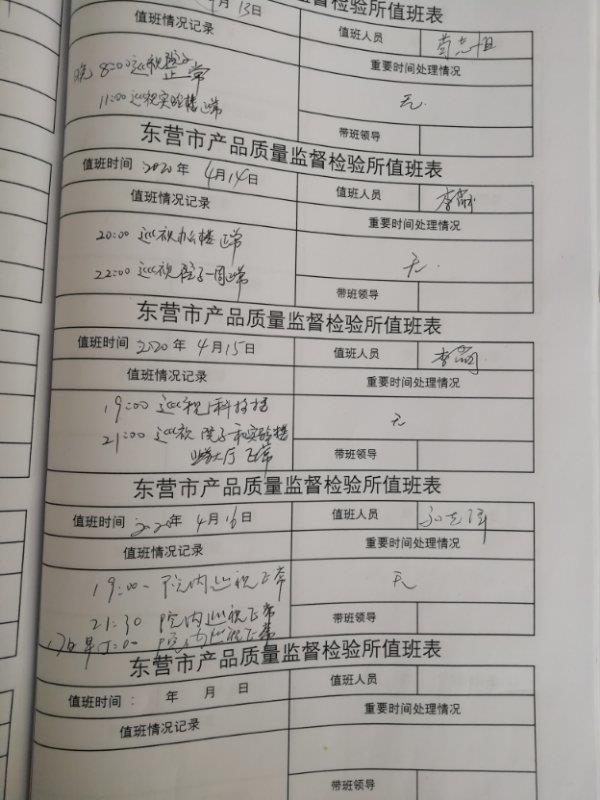 月13日
检验所值班表
值班情况记录 值班人员
晚8:00巡视院子正常 重要时间处理情况
11:00巡视实验楼正常 无.
带班领导
东营市产品质量监督检验所值班表
值班时间 2020年 4月14日 值班人员
值班情况记录 重要时间处理情况
20:00 巡视办公楼正常 无.
22:00 巡视院子一周正常 带班领导
东营市产品质量监督检验所值班表
值班时间 2020年 4月15日 值班人员
值班情况记录 重要时间处理情况
19:00 巡视科技楼 无
21:00 巡视 院子和实验楼
大厅正常 带班领导
东营市产品质量监督检验所值班表
值班时间 2020年 4月16日 值班人员
值班情况记录 重要时间处理情况
19:00 院内巡视正常 无
21:30 院内巡视正常 带班领导
17日早5:00 院内巡视正常
东营市产品质量监督检验所值班表
值班时间: 年 月 日 值班人员
值班情况记录 重要时间处理情况
带班领导